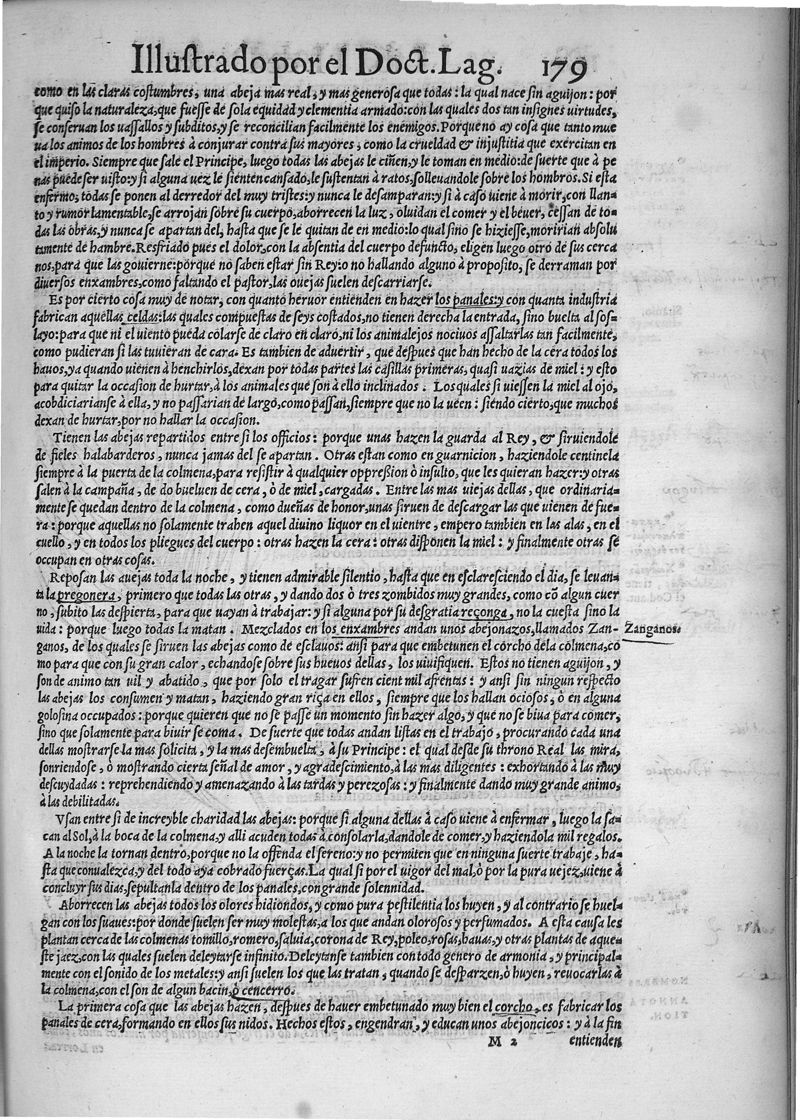 Illustrado por el Doct. Lag. 179
como en las claras costumbres, una abeja mas real, y mas generosa que todas: la qual nace sin aguijon: por
que quiso la naturaleza, que fuesse de sola equidad y clementia armado: con las quales dos tan insignes uirtudes,
se conseruan los uassallos y subditos, y se reconcilian facilmente los enemigos. Porque no ay cosa que tanto mue
ua los animos de los hombres à conjurar contra sus mayores, como la crueldad & injustitia que exércitan en
el imperio. Siempre que sale el Principe, luego todas las abejas le ciñen, y le toman en medio: de suerte que à pe
nas puede ser uisto: y si alguna uez le sienten cansado, le sustentan à ratos, solleuandole sobre los hombros. Si esta
enfermo, todas se ponen al derredor del muy tristes: y nunca le desamparan: y si à caso uiene à morir, con llan-
to y rumor lamentable, se arrojan sobre su cuerpo, aborrecen la luz, oluidan el comer y el beuer, cessan de to-
das las obras, y nunca se apartan del, hasta que se le quitan de en medio: lo qual sino se hiziesse, moririan absolu
tamente de hambre. Resfriado pues el dolor, con la absentia del cuerpo defuncto, eligen luego otro de sus cerca
nos, para que las gouierne: porque no saben estar sin Rey: o no hallando alguno à proposito, se derraman por
diuersos enxambres, como faltando el pastor, las ouejas suelen descarriarse.
Es por cierto cosa muy de notar, con quanto heruor entienden en hazer los panales: y con quanta industria
fabrican aquellas celdas: las quales compuestas de seys costados, no tienen derecha la entrada, sino buelta al sos-
layo: para que ni el uiento pueda colarse de claro en claro, ni los animalejos nociuos assaltarlas tan facilmente,
como pudieran si las tuuieran de cara. Es tambien de aduertir, que despues que han hecho de la cera todos los
hauos, ya quando uienen à henchirlos, dexan por todas partes las casillas primeras, quasi uazias de miel: y esto
para quitar la occasion de hurtar, à los animales que son à ello inclinados. Los quales si uiessen la miel al ojo,
acobdiciarianse à ella, y no passarian de largo, como passan, siempre que no la ueen: siendo cierto, que muchos
dexan de hurtar, por no hallar la occasion.
Tienen las abejas repartidos entre si los officios: porque unas hazen la guarda al Rey, & siruiendole
de fieles halabarderos, nunca jamas del se apartan. Otras estan como en guarnicion, haziendole centinela
siempre à la puerta de la colmena, para resistir à qualquier oppreßion ò insulto, que les quieran hazer: y otras
salen à la campaña, de do bueluen de cera, ò de miel, cargadas. Entre las mas uiejas dellas, que ordinaria-
mente se quedan dentro de la colmena, como dueñas de honor, unas siruen de descargar las que uienen de fue-
ra: porque aquellas no solamente trahen aquel diuino liquor en el uientre, empero tambien en las alas, en el
cuello, y en todos los pliegues del cuerpo: otras hazen la cera: otras disponen la miel: y finalmente otras se
occupan en otras cosas.
Reposan las auejas toda la noche, y tienen admirable silentio, hasta que en esclaresciendo el dia, se leuan-
ta la pregonera, primero que todas las otras, y dando dos ò tres zombidos muy grandes, como cõ algun cuer
no, subito las despierta, para que uayan à trabajar: y si alguna por su desgratia reçonga, no la cuesta sino la
uida: porque luego todas la matan. Mezclados en los enxambres andan unos abejonazos, llamados Zan-
ganos, de los quales se siruen las abejas como de esclauos: ansi para que embetunen el corcho de la colmena, co
mo para que con su gran calor, echandose sobre sus hueuos dellas, los uiuifiquen. Estos no tienen aguijon, y
son de animo tan uil y abatido, que por solo el tragar sufren cient mil afrentas: y ansi sin ningun respecto
las abejas los consumen y matan, haziendo gran riça en ellos, siempre que los hallan ociosos, ò en alguna
golosina occupados: porque quieren que no se passe un momento sin hazer algo, y que no se biua para comer,
sino que solamente para biuir se coma. De suerte que todas andan listas en el trabajo, procurando cada una
dellas mostrarse la mas solicita, y la mas desembuelta, à su Principe: el qual desde su throno Real las mira,
sonriendose, ò mostrando cierta señal de amor, y agradescimiento, à las mas diligentes: exhortando à las muy
descuydadas: reprehendiendo y amenazando à las tardas y perezosas: y finalmente dando muy grande animo,
à las debilitadas.
Vsan entre si de increyble charidad las abejas: porque si alguna dellas à caso uiene à enfermar, luego la sa-
can al Sol, à la boca de la colmena, y alli acuden todas à consolarla, dandole de comer, y haziendola mil regalos.
A la noche la tornan dentro, porque no la offenda el sereno: y no permiten que en ninguna suerte trabaje, ha-
sta que conualezca, y del todo aya cobrado fuerças. La qual si por el uigor del mal, ò por la pura uejez, uiene à
concluyr sus dias, sepultanla dentro de los panales, con grande solennidad.
Aborrecen las abejas todos los olores hidiondos, y como pura pestilentia los huyen, y al contrario se huel-
gan con los suaues: por donde suelen ser muy molestas, a los que andan olorosos y perfumados. A esta causa les
plantan cerca de las colmenas tomillo, romero, saluia, corona de Rey, poleo, rosas, hauas, y otras plantas de aque-
ste jaez, con las quales suelen deleytarse infinito. Deleytanse tambien con todo genero de armonia, y principal-
mente con el sonido de los metales: y ansi suelen los que las tratan, quando se desparzen, ò huyen, reuocarlas à
la colmena, con el son de algun bacin, ò cencerro.
La primera cosa que las abejas hazen, despues de hauer embetunado muy bien el corcho, es fabricar los
panales de cera, formando en ellos sus nidos. Hechos estos, engendran, y educan unos abejoncicos: y à la fin
M 2 entienden
Zanganos.